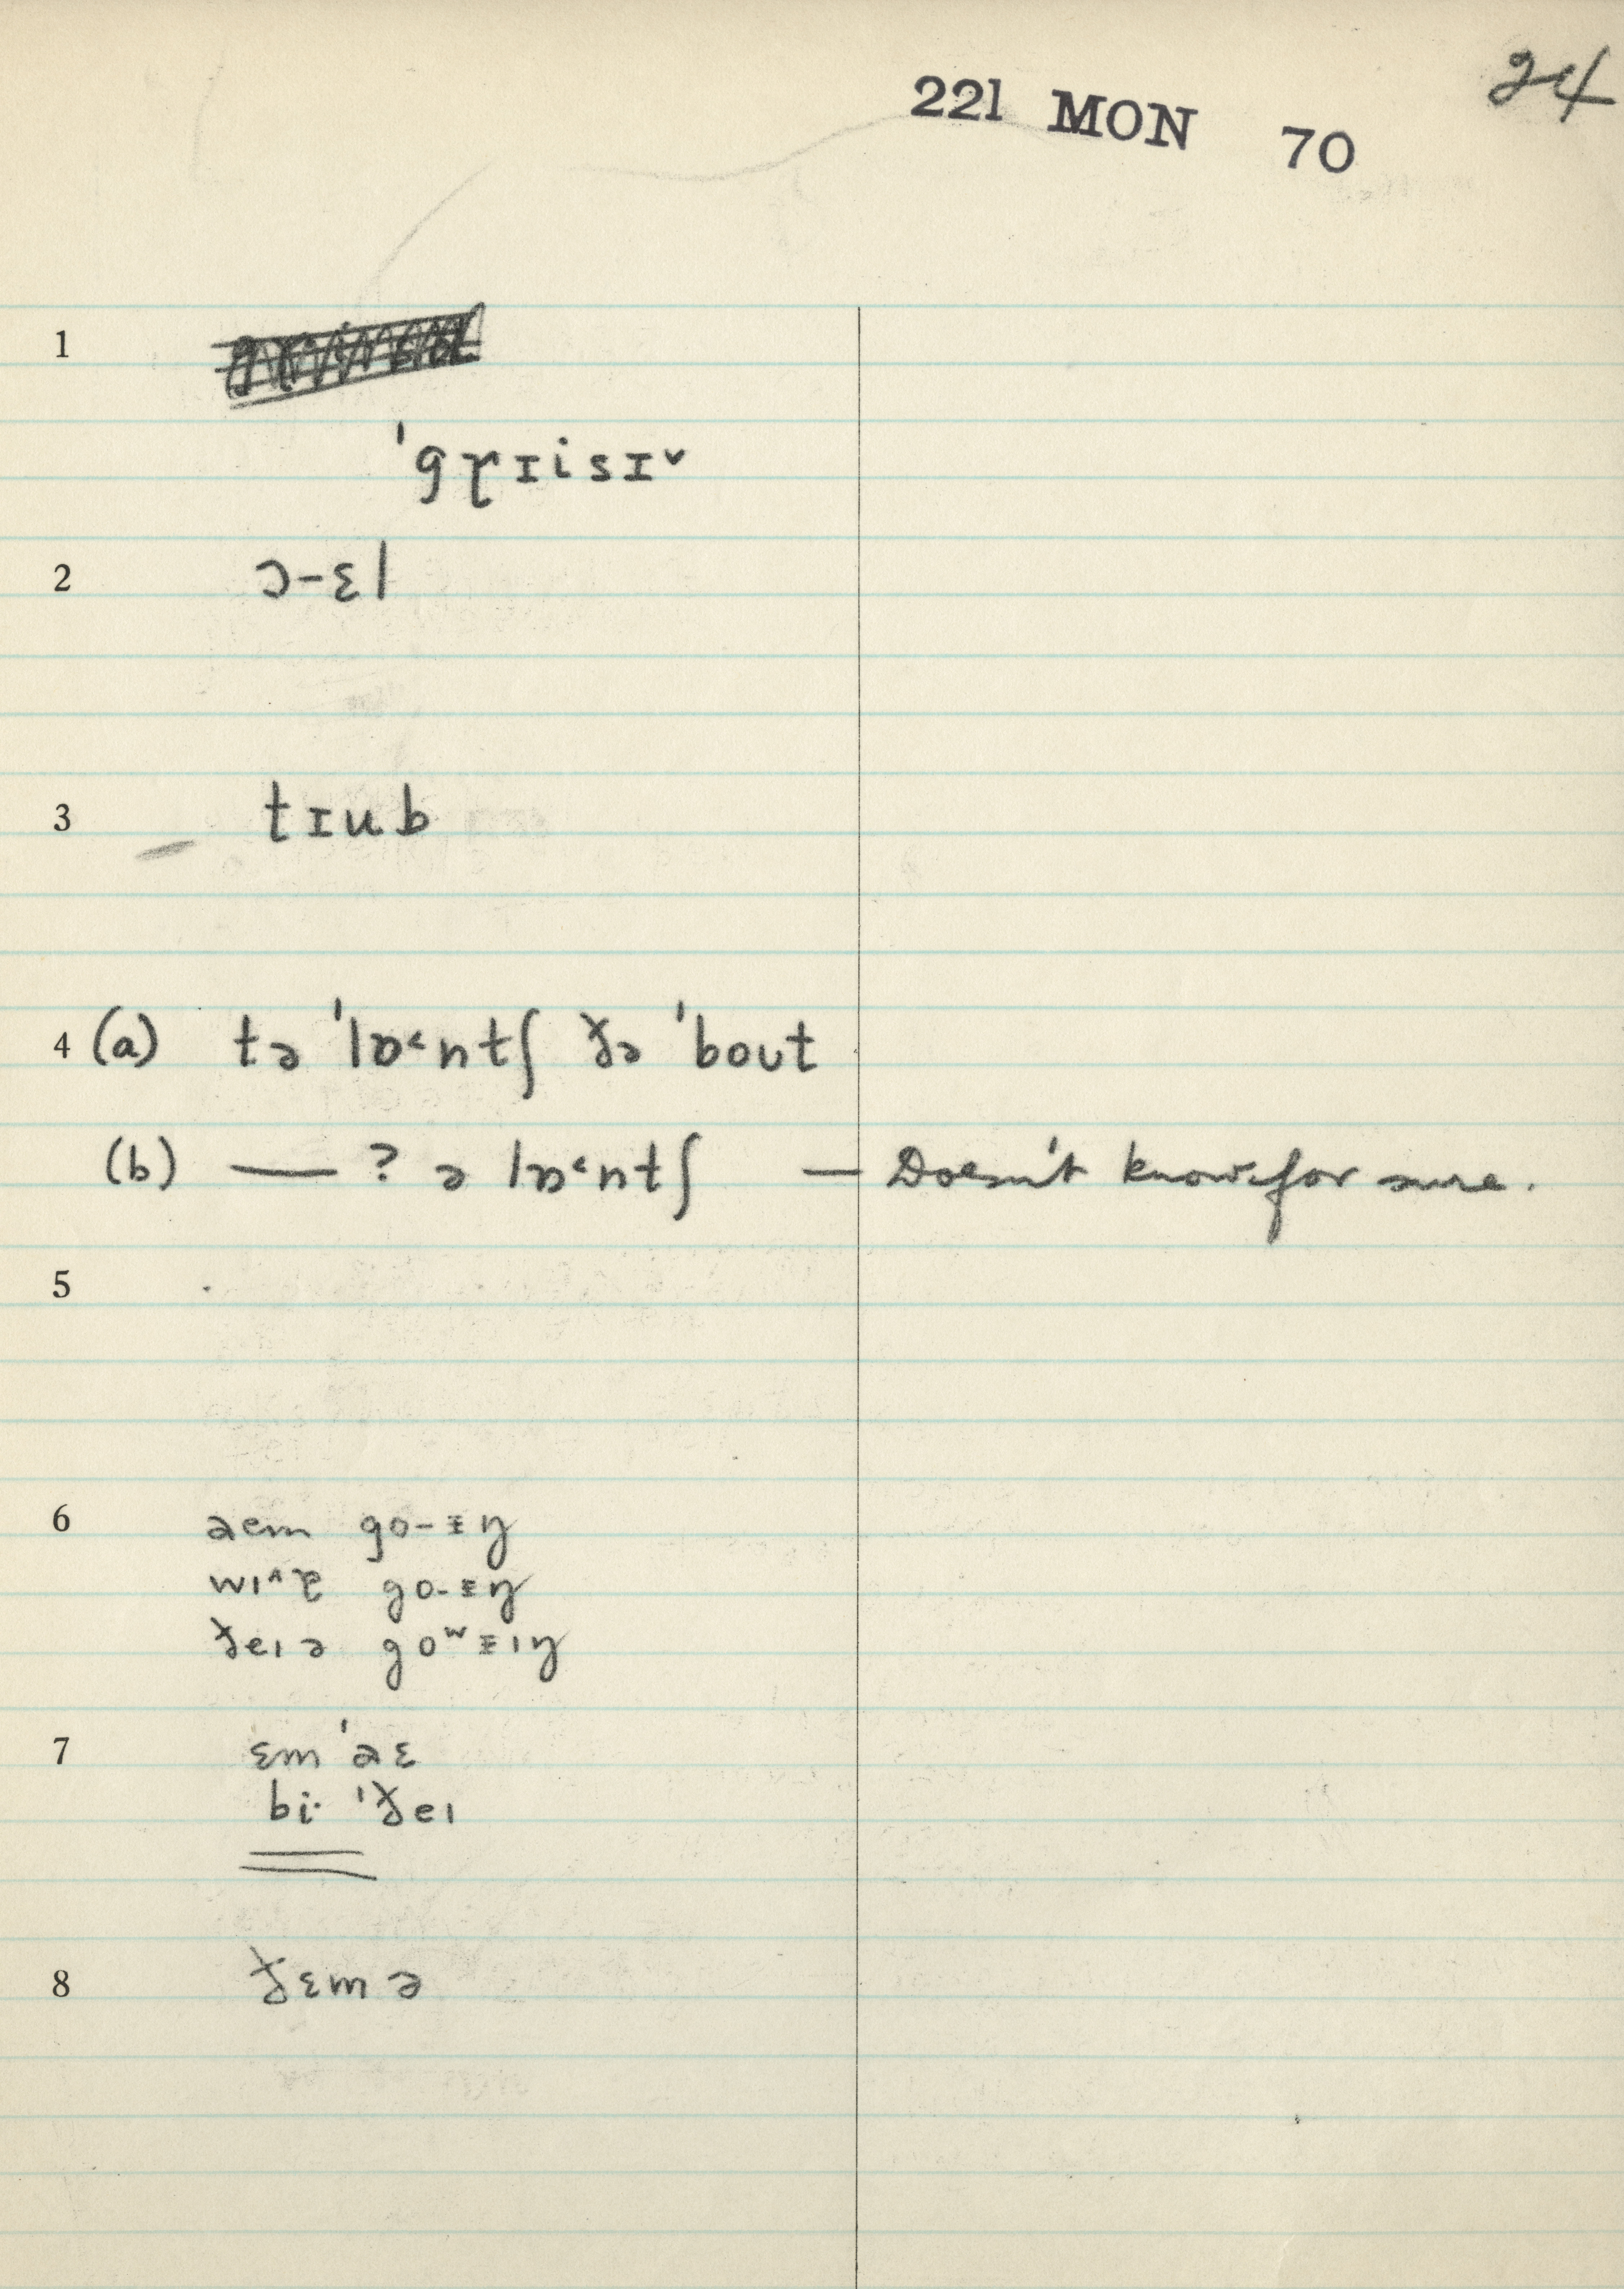 24
221 MON 70
1
ˈgɽɪisɪ˅
2 ɔ-ɛl
3 tɪub
4 (a) tə ˈlɒ˂ntʃ ðə ˈbout
(b) — ? ə lɒ˂ntʃ — Doesn't know for sure.
5
6 aem go-ɪŋ
wɪ˄ɚ go-ɪŋ
ðeɪ ə goʷɪɪŋ
7 ɛm ˈaɛ
bi· ˈðeɪ
8 ðɛm ə